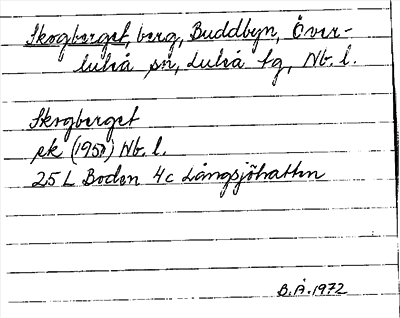 Skogberget, berg, Buddbyn, Över-
luleå sn, Luleå tg, Nb. l.
Skogberget
ek (1950) Nb. l.
25 L Boden 4c Långsjöhatten
B.Å. 1972